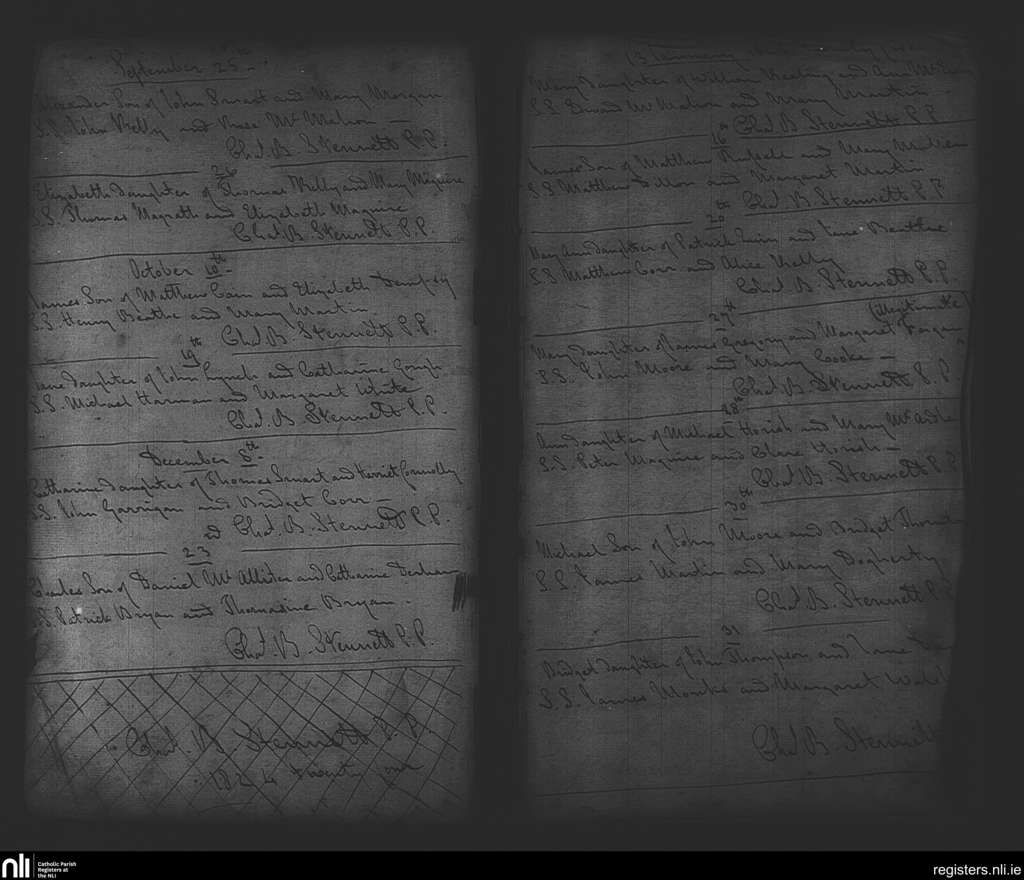 September 25th
Alexander Son of John Smart and Mary Morgan
S.S. John Kelly and Rose McMahon —
Chas. B. Stennett P.P.
26
Elizabeth Daughter of Thomas Kelly and Mary Maguire
S.S. Thomas Magrath and Elizabeth Maguire
Chas. B. Stennett P.P.
October 10th
James Son of Matthew and Elizabeth Dempsy
S.S. Henry Beathe and Mary Martin
Chas. B. Stennett P.P.
19th
Jane Daughter of John Lynch and Catharine Gough
S.S. Michael Harman and Margaret White
Chas. B. Stennett P.P.
December 8th
Catharine Daughter of Thomas Smart and Harriet Connolly
S.S. John Garrigan and Bridget Corr —
Chas. B. Stennett P.P.
23rd
Charles Son of Daniel McAllister and Catharine
S.S. Patrick Bryan and Thomasine Bryan.
Chas. B. Stennett P.P.
Chas. B. Stennett P.P.
1824 twenty
13 January
Mary Daughter of William Keating and Ann
S.S. McMahon and Mary Martin
Chas. B. Stennett P.P.
16th
James Son of Matthew Russell and Mary
S.S. Matthew Dillon and Margaret Martin
Chas. B. Stennett P.P.
20th
Mary Ann Daughter of Patrick Quinn and Jane
S.S. Matthew Corr and Alice Kelly
Chas. B. Stennett P.P.
27th (Illegitimate)
Mary Daughter of James Gregory and Margaret Fagan
S.S. John Moore and Mary Cooke —
Chas. B. Stennett P.P.
28th
Ann Daughter of Michael Horish and Mary McArdle
S.S. Peter Maguire and Clare Horish —
Chas. B. Stennett P.P.
30th
Michael Son of John Moore and Bridget
S.S. James Martin and Mary Dogherty
Chas. B. Stennett P.P.
31
Bridget Daughter of John Thompson and Jane
S.S. James and Margaret
Chas. B. Stennett
nli
Catholic Parish
Registers at
the NLI
registers.nli.ie